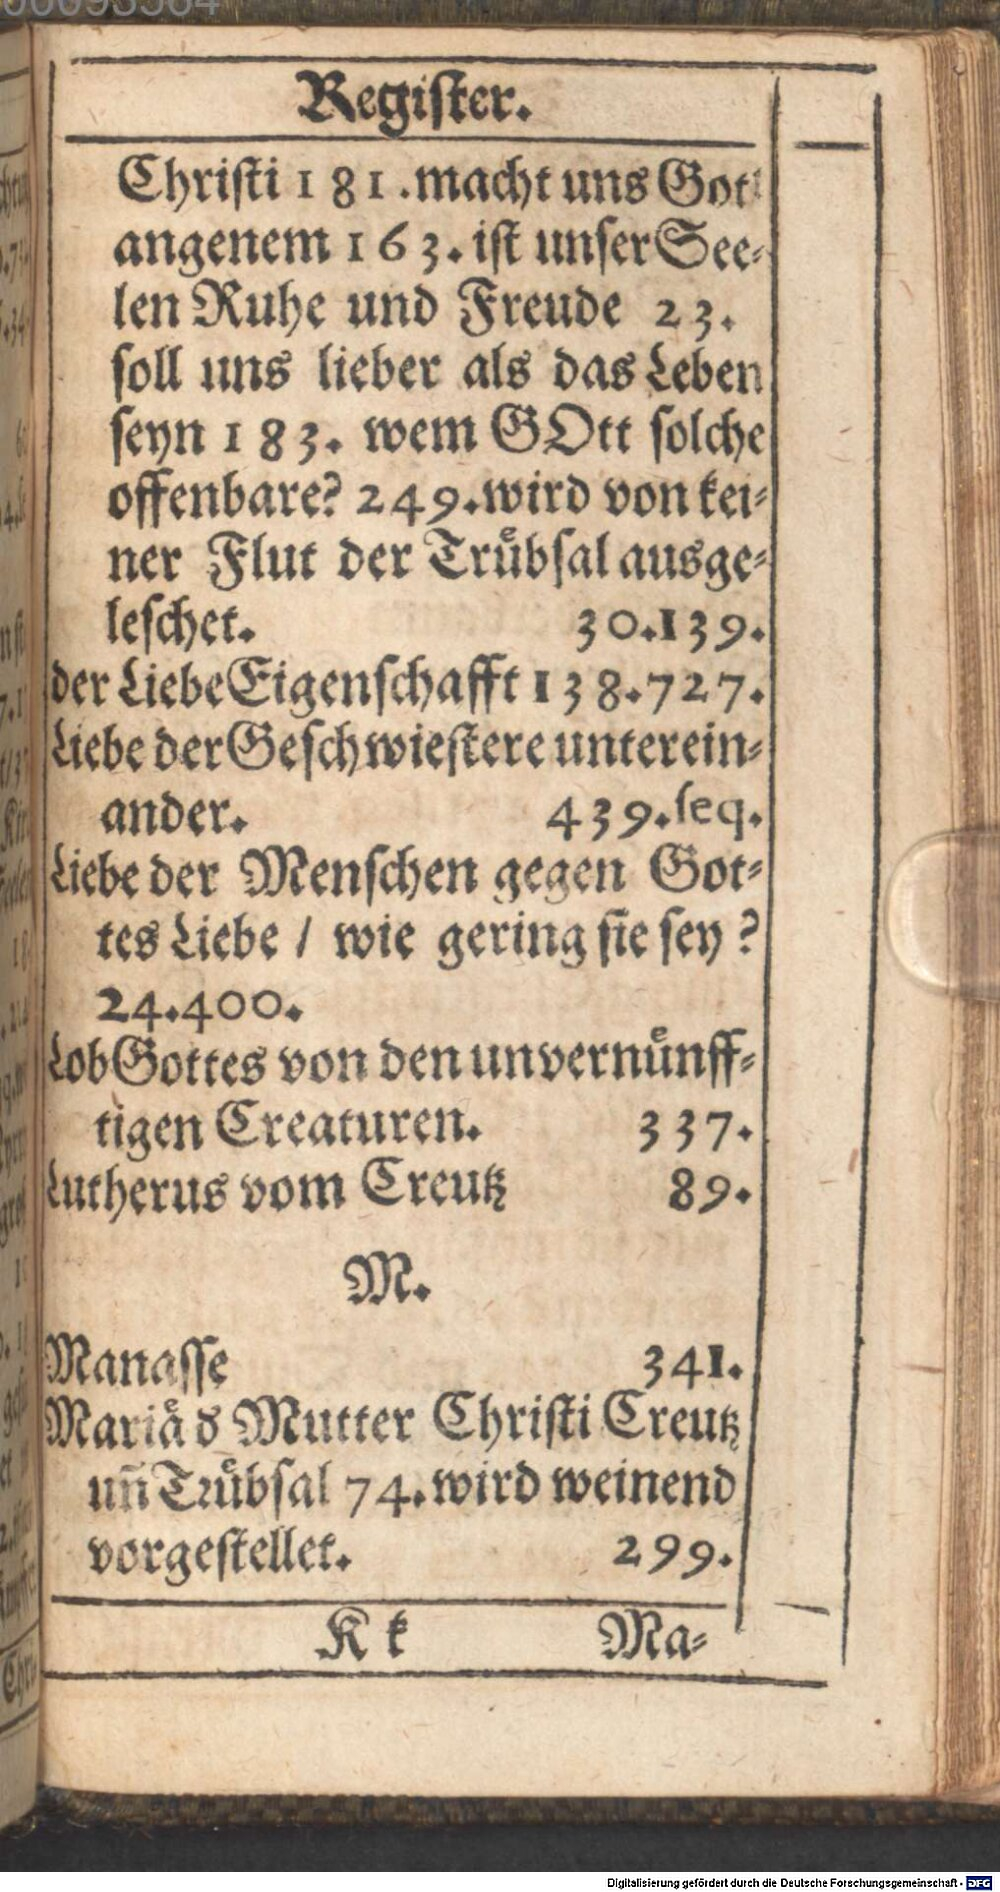 Register.
Christi 181. macht uns Gott
angenem 163. ist unser See-
len Ruhe und Freude 23.
soll uns lieber als das Leben
seyn 183. wem GOtt solche
offenbare? 249. wird von kei-
ner Flut der Trůbsal ausge-
leschet. 30.139.
der Liebe Eigenschafft 138.727.
Liebe der Geschwiestere unterein-
ander. 439. seq.
Liebe der Menschen gegen Got-
tes Liebe / wie gering sie sey?
24.400.
Lob Gottes von den unvernůnff-
tigen Creaturen. 337.
Lutherus vom Creutz 89.
M.
Manasse 341.
Mariaͤ d Mutter Christi Creutz
un̄ Trůbsal 74. wird weinend
vorgestellet. 299.
K k Ma-
Digitalisierung gefördert durch die Deutsche Forschungsgemeinschaft - DFG